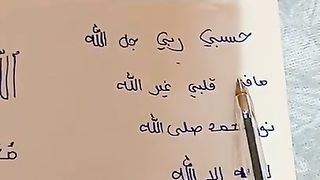 حسبي ربي جل الله
مافي قلبي غير الله
نور محمد صلى الله
لا إله إلا الله